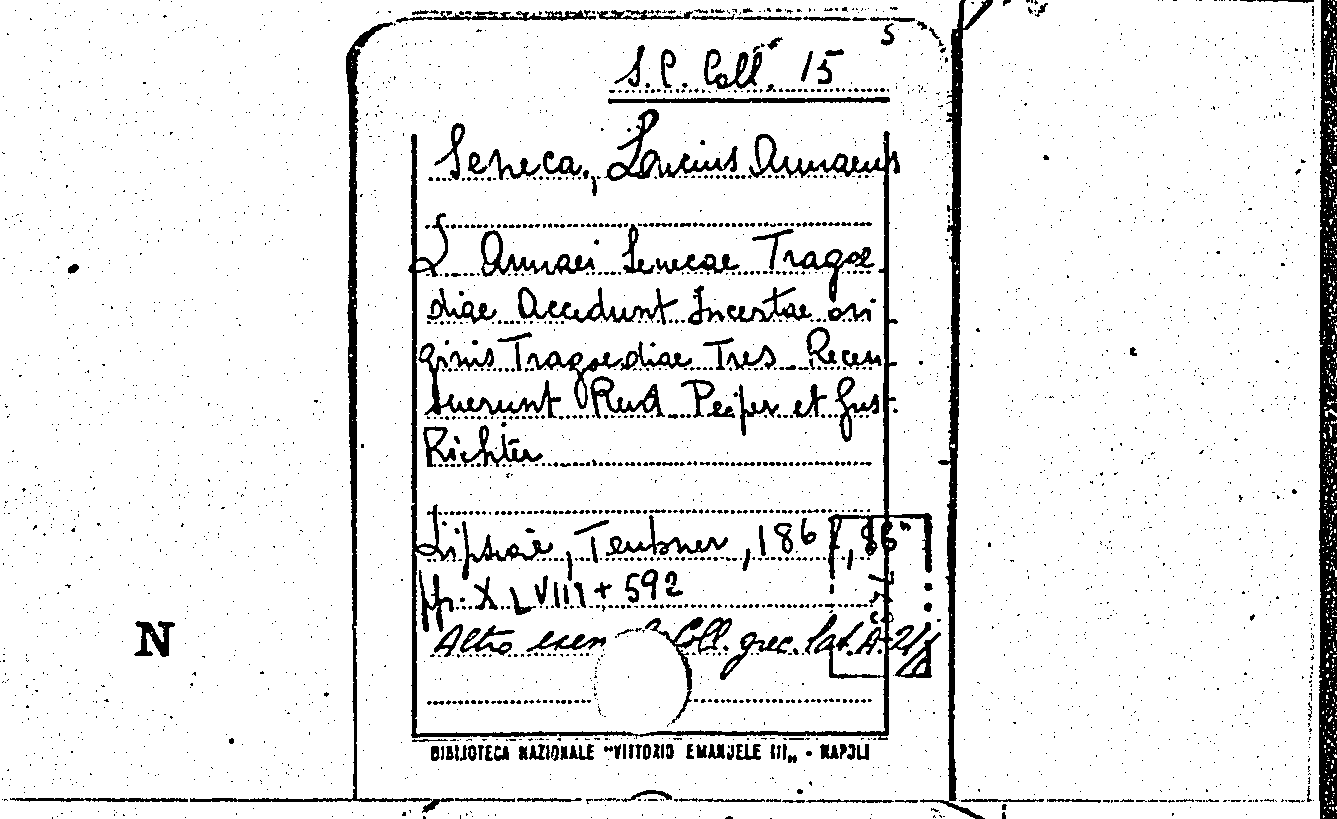 5
S.C. Coll. 15
Seneca, Lucius Annaeus
L Annaei Senecae Tragoe
diae Accedunt Incertae ori
ginis Tragoediae Tres. Recen
suerunt Rud Peiper et Gus.
Richter
Lipsiae, Teubner, 186
pp. XLVIII + 592
Altro esem Coll. grec. lat. A. 2/
N
BIBLIOTECA NAZIONALE "VITTORIO EMANUELE III„ - NAPOLI